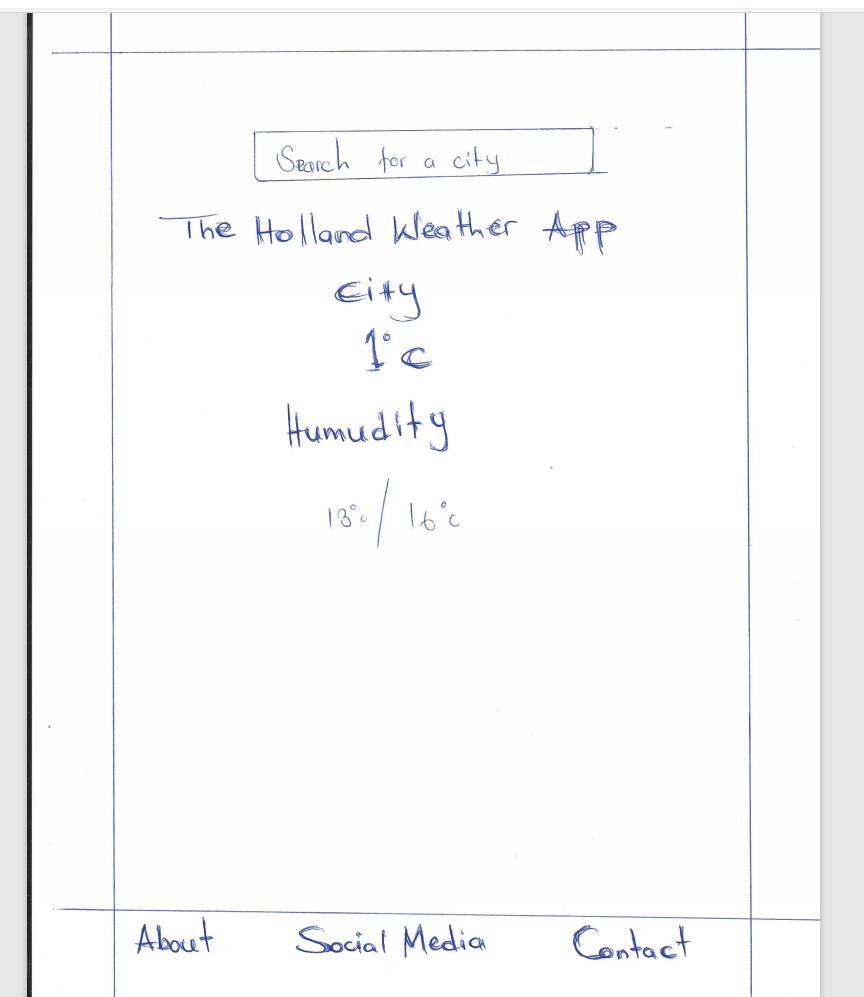 Search for a city
The Holland Weather App
City
1°C
Humudity
13°c / 16°c
About Social Media Contact